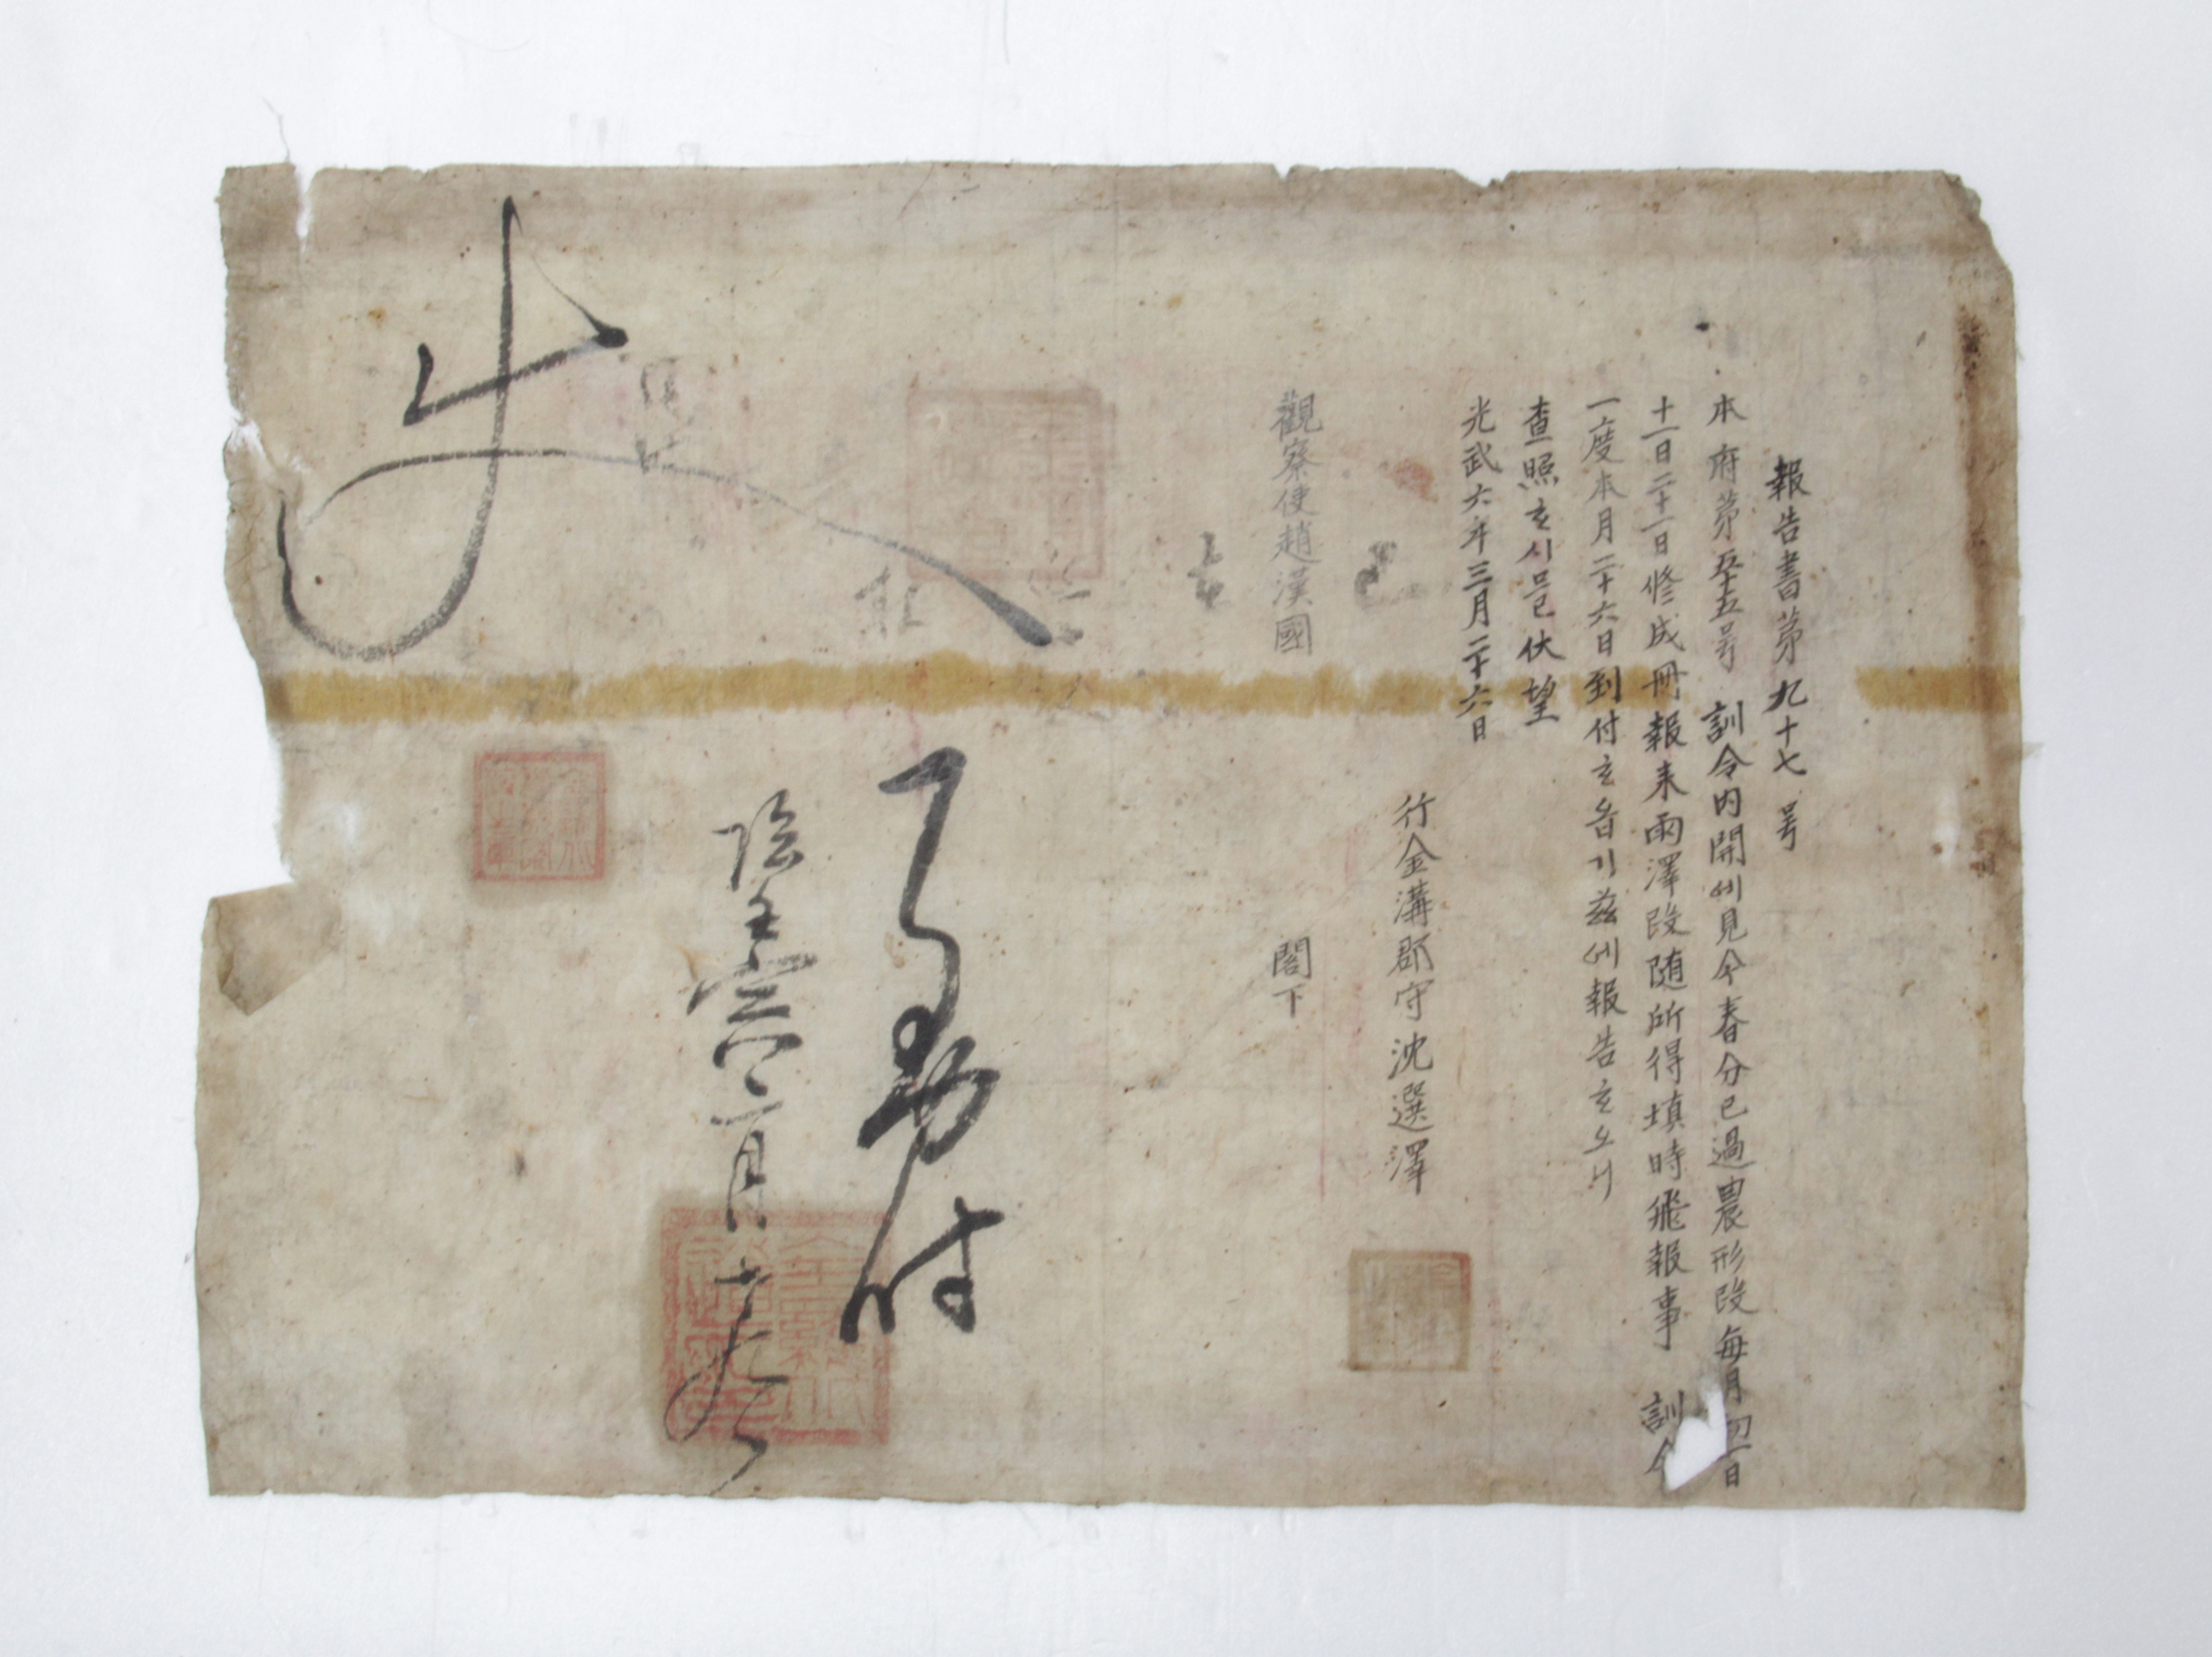 報告書第九十七号
本府第五十五号 訓令內開에見今春分已過農形段每月初一日
十一日二十一日修成冊報来雨澤段随所得塡時飛報事 訓令
一度本月二十六日到付호읍기玆에報告호오니
查照호시믈伏望
光武六年三月二十六日
行金溝郡守沈選澤
觀察使趙漢國 閣下
到付
陰壬寅二月十八